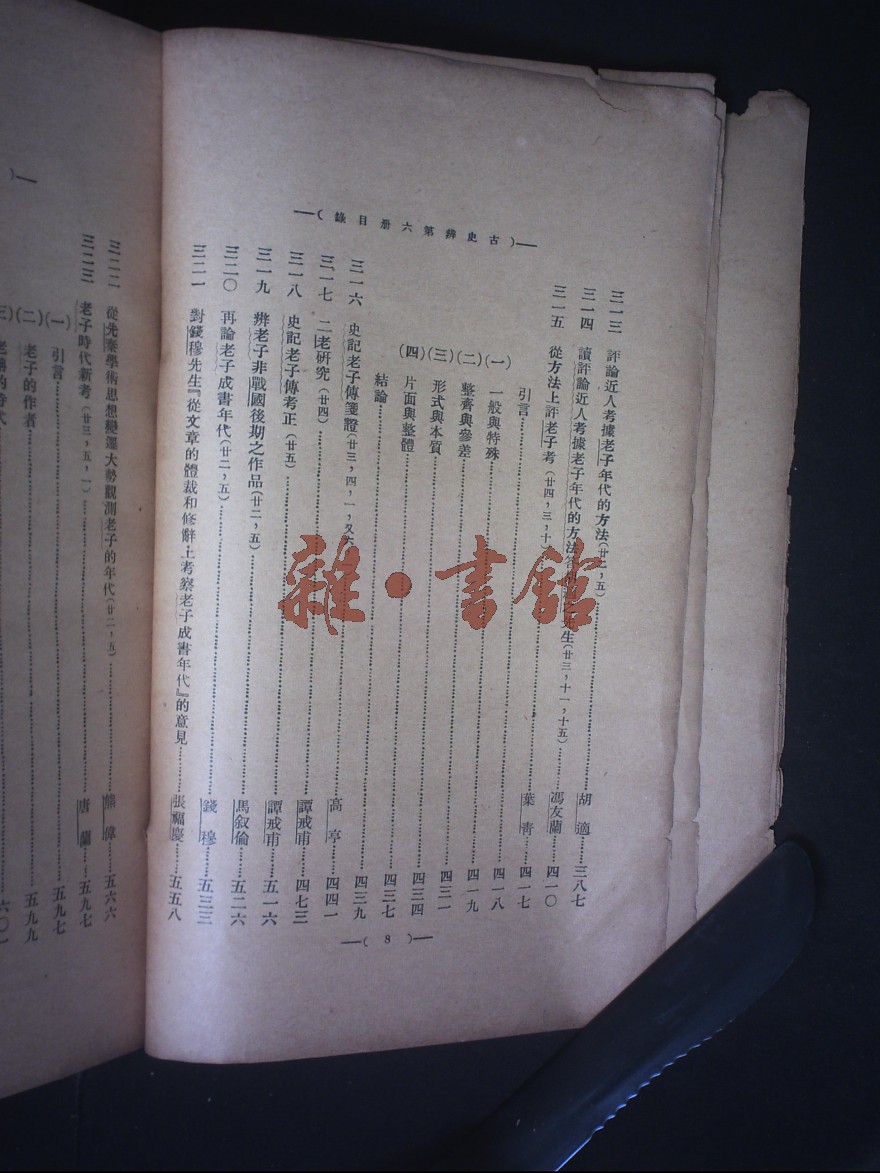 —( 古史辨第六册目錄 )—
三一三 評論近人考據老子年代的方法(廿二,五)……胡適……三八七
三一四 讀評論近人考據老子年代的方法答 生(廿三,十一,十五)……馮友蘭……四一〇
三一五 從方法上評老子考(廿四,三,十……葉青……四一七
引言……四一七
(一) 一般與特殊……四一八
(二) 整齊與參差……四一九
(三) 形式與本質……四三一
(四) 片面與整體……四三四
結論……四三七
三一六 史記老子傳箋證(廿三,四,一,又……高亨……四三九
三一七 二老研究(廿四)……譚戒甫……四四一
三一八 史記老子傳考正(廿五)……譚戒甫……四七三
三一九 辨老子非戰國後期之作品(廿二,五)……馬叙倫……五一六
三二〇 再論老子成書年代(廿二,五)……錢穆……五二六
三二一 對錢穆先生『從文章的體裁和修辭上考察老子成書年代』的意見……張福慶……五五八
—( 8 )—
三二二 從先秦學術思想變遷大勢觀測老子的年代(廿二,五)……熊偉……五六六
三二三 老子時代新考(廿三,五,一)……唐蘭……五九七
(一) 引言……五九七
(二) 老子的作者……五九九
六〇一
雜·書館